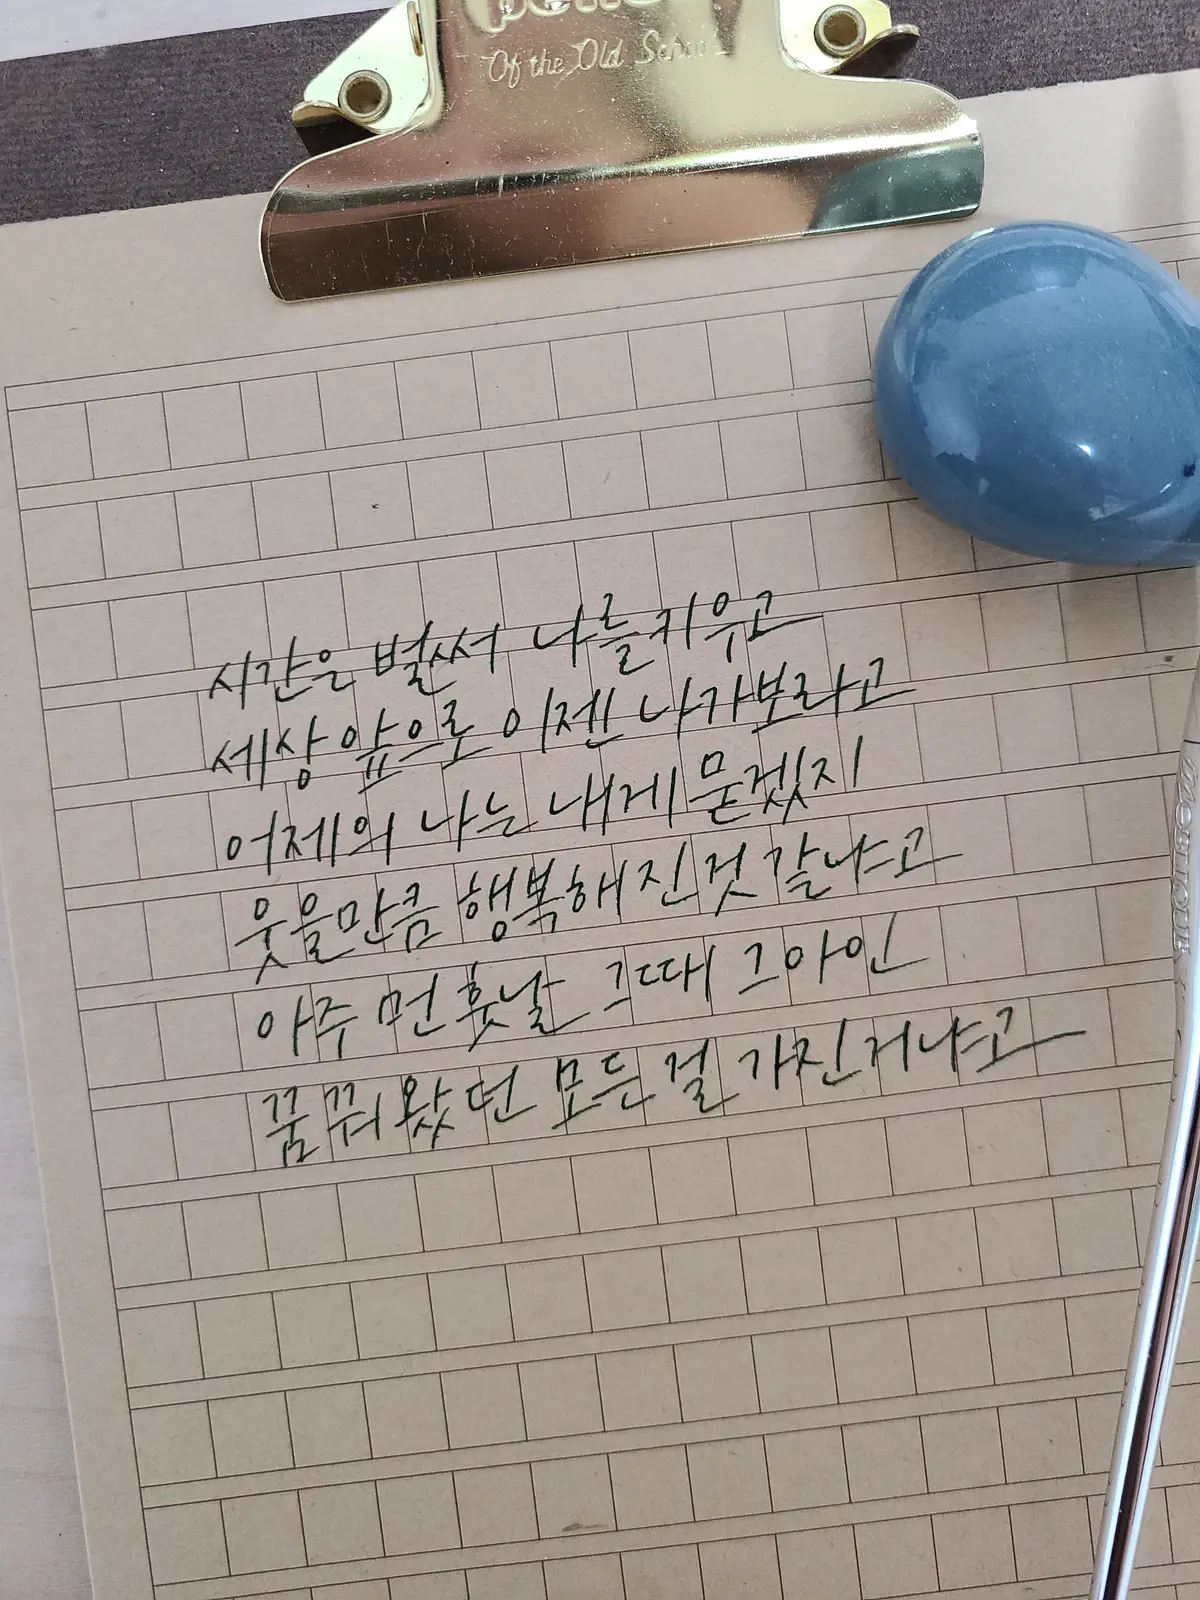 Of the Old School
시간은 벌써 나를 키우고
세상 앞으로 이젠 나가보라고
어제의 나는 내게 묻겠지
웃을만큼 행복해 진 것 같냐고
아주 먼 훗날 그때 그 아인
꿈꿔왔던 모든 걸 가진 거냐고